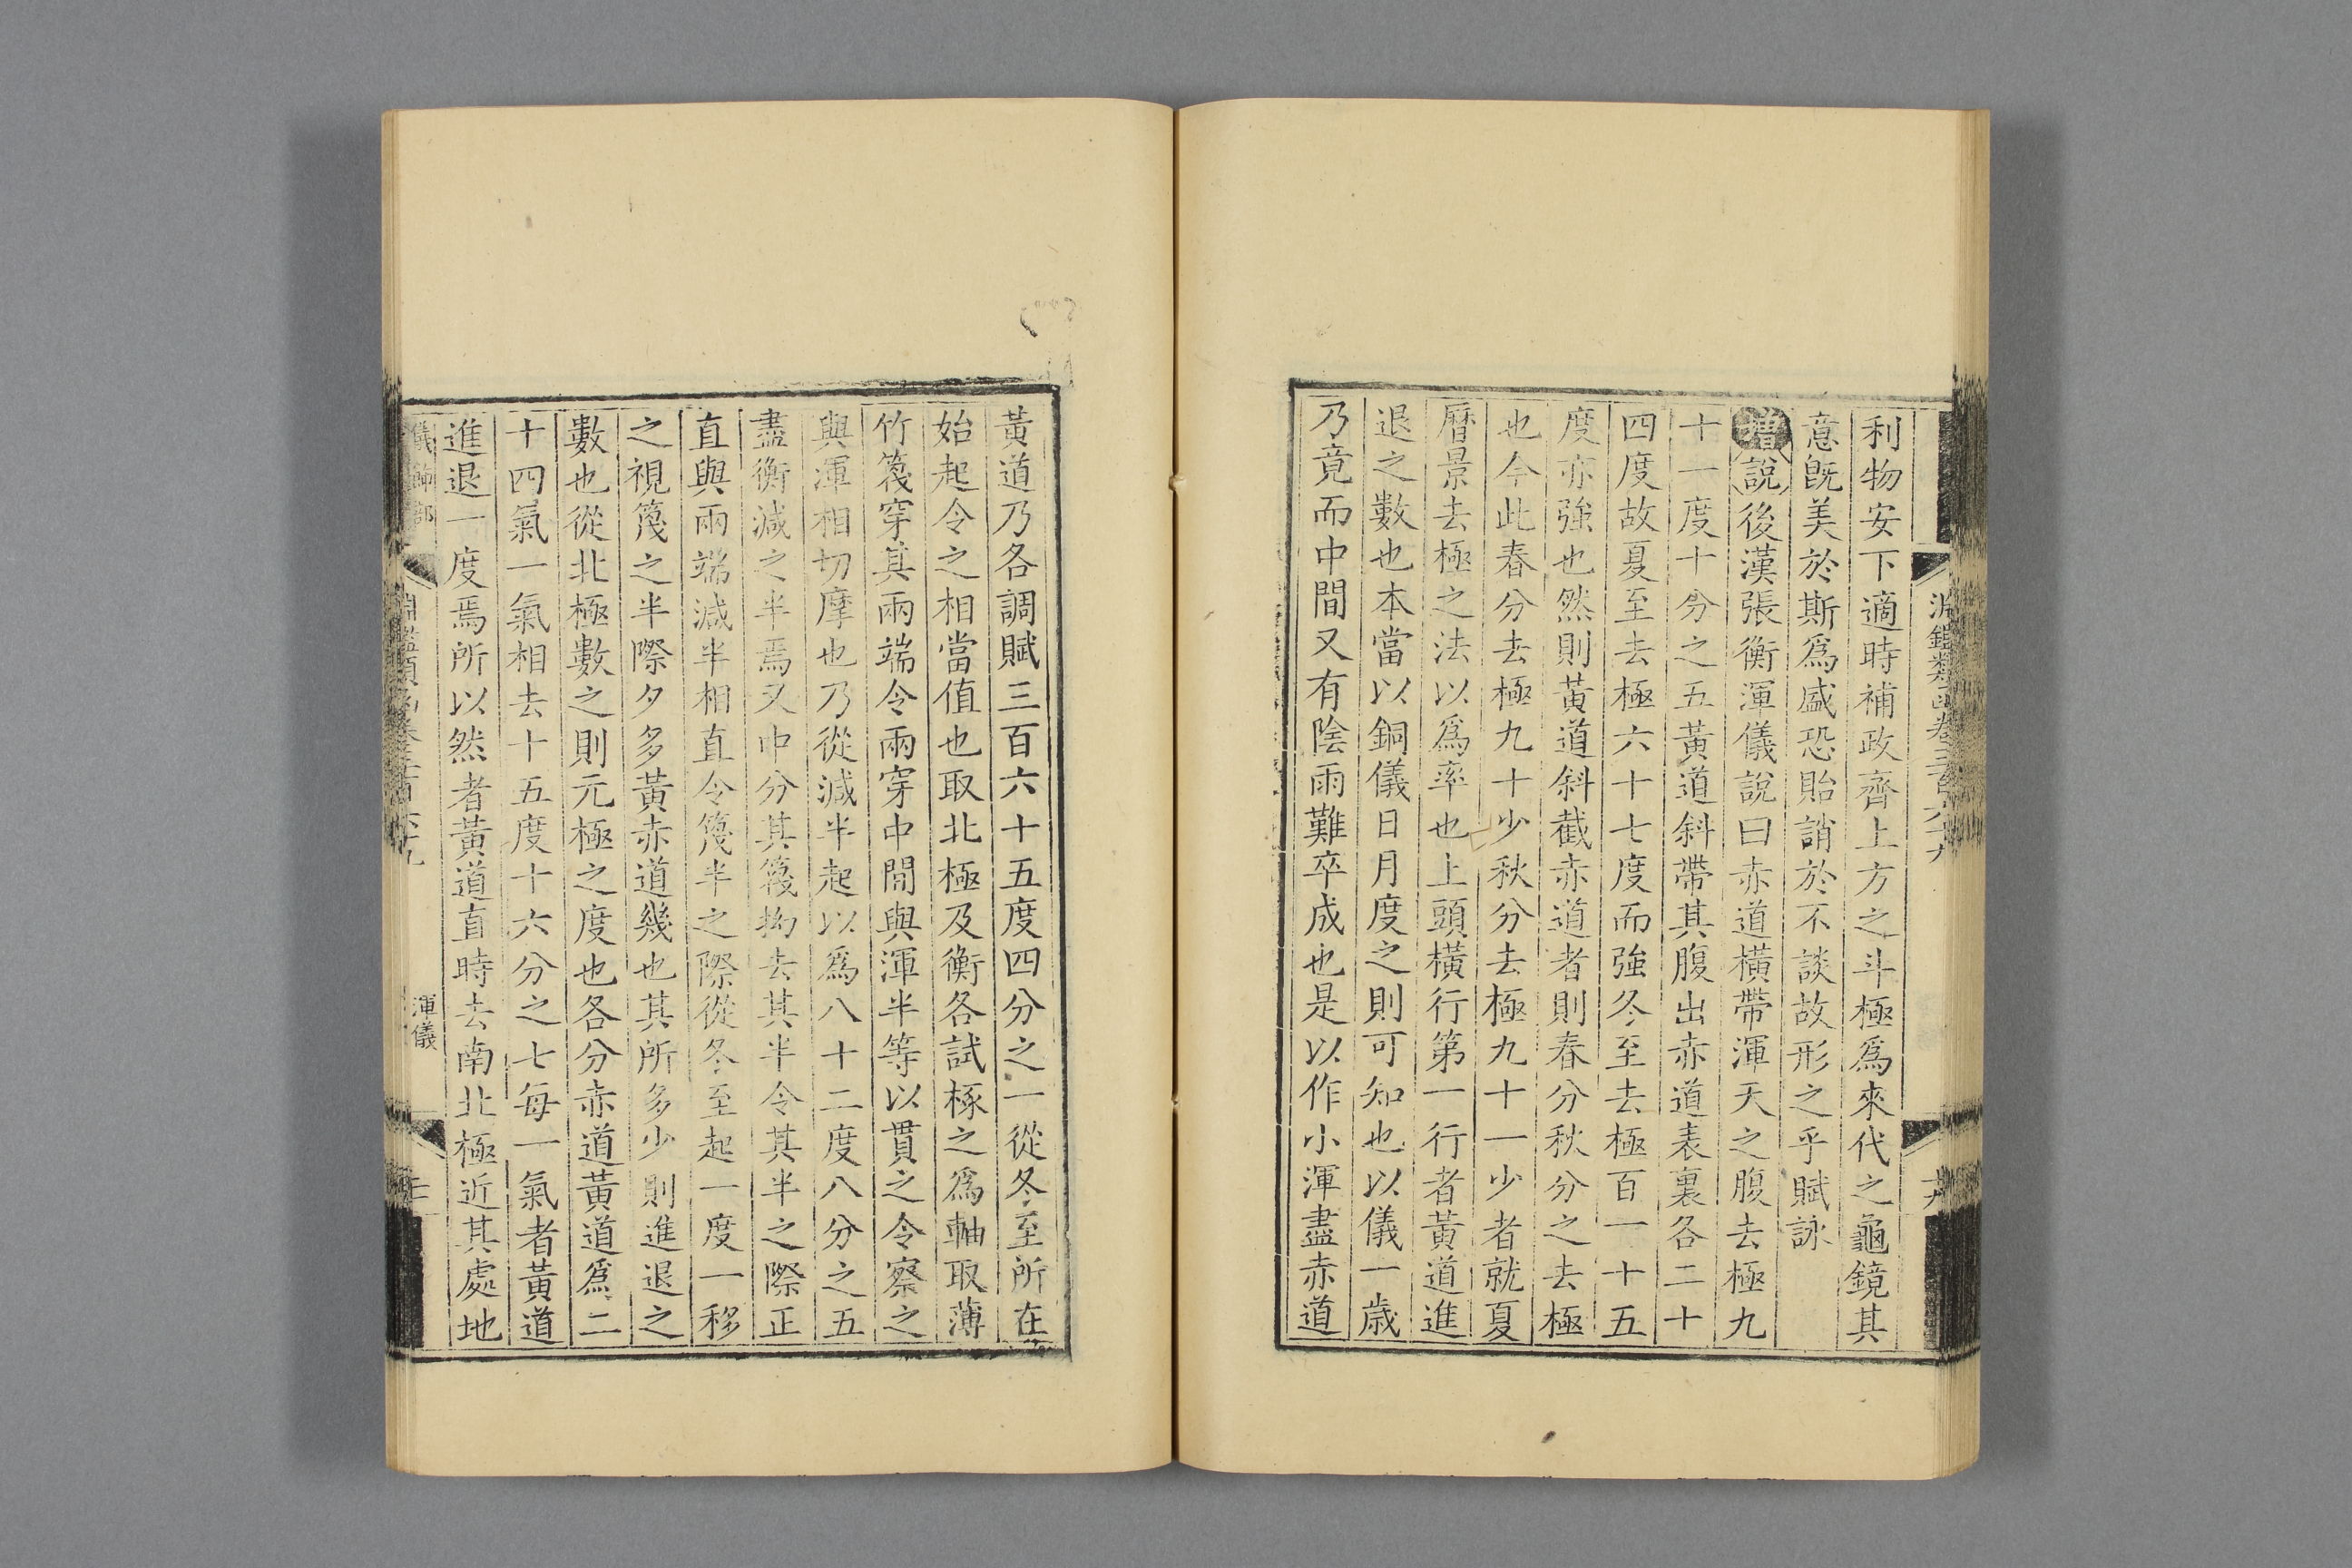 淵鑑類函卷三百六十九
利物安下適時補政齊上方之斗極爲來代之龜鏡其
意旣美於斯爲盛恐貽誚於不談故形之乎賦詠
增說後漢張衡渾儀說曰赤道橫帶渾天之腹去極九
十一度十分之五黃道斜帶其腹出赤道表裏各二十
四度故夏至去極六十七度而強冬至去極百一十五
度亦強也然則黃道斜截赤道者則春分秋分之去極
也今此春分去極九十少秋分去極九十一少者就夏
曆景去極之法以爲率也上頭橫行第一行者黃道進
退之數也本當以銅儀日月度之則可知也以儀一歲
乃竟而中間又有陰雨難卒成也是以作小渾盡赤道
黃道乃各調賦三百六十五度四分之一從冬至所在
始起令之相當值也取北極及衡各試椓之爲軸取薄
竹篾穿其兩端令兩穿中間與渾半等以貫之令察之
與渾相切摩也乃從減半起以爲八十二度八分之五
盡衡減之半焉又中分其篾拗去其半令其半之際正
直與兩端減半相直令篾半之際從冬至起一度一移
之視篾之半際夕多黃赤道幾也其所多少則進退之
數也從北極數之則元極之度也各分赤道黃道爲二
十四氣一氣相去十五度十六分之七每一氣者黃道
進退一度焉所以然者黃道直時去南北極近其處地
儀飾部
淵鑑類函卷三百六十九
渾儀